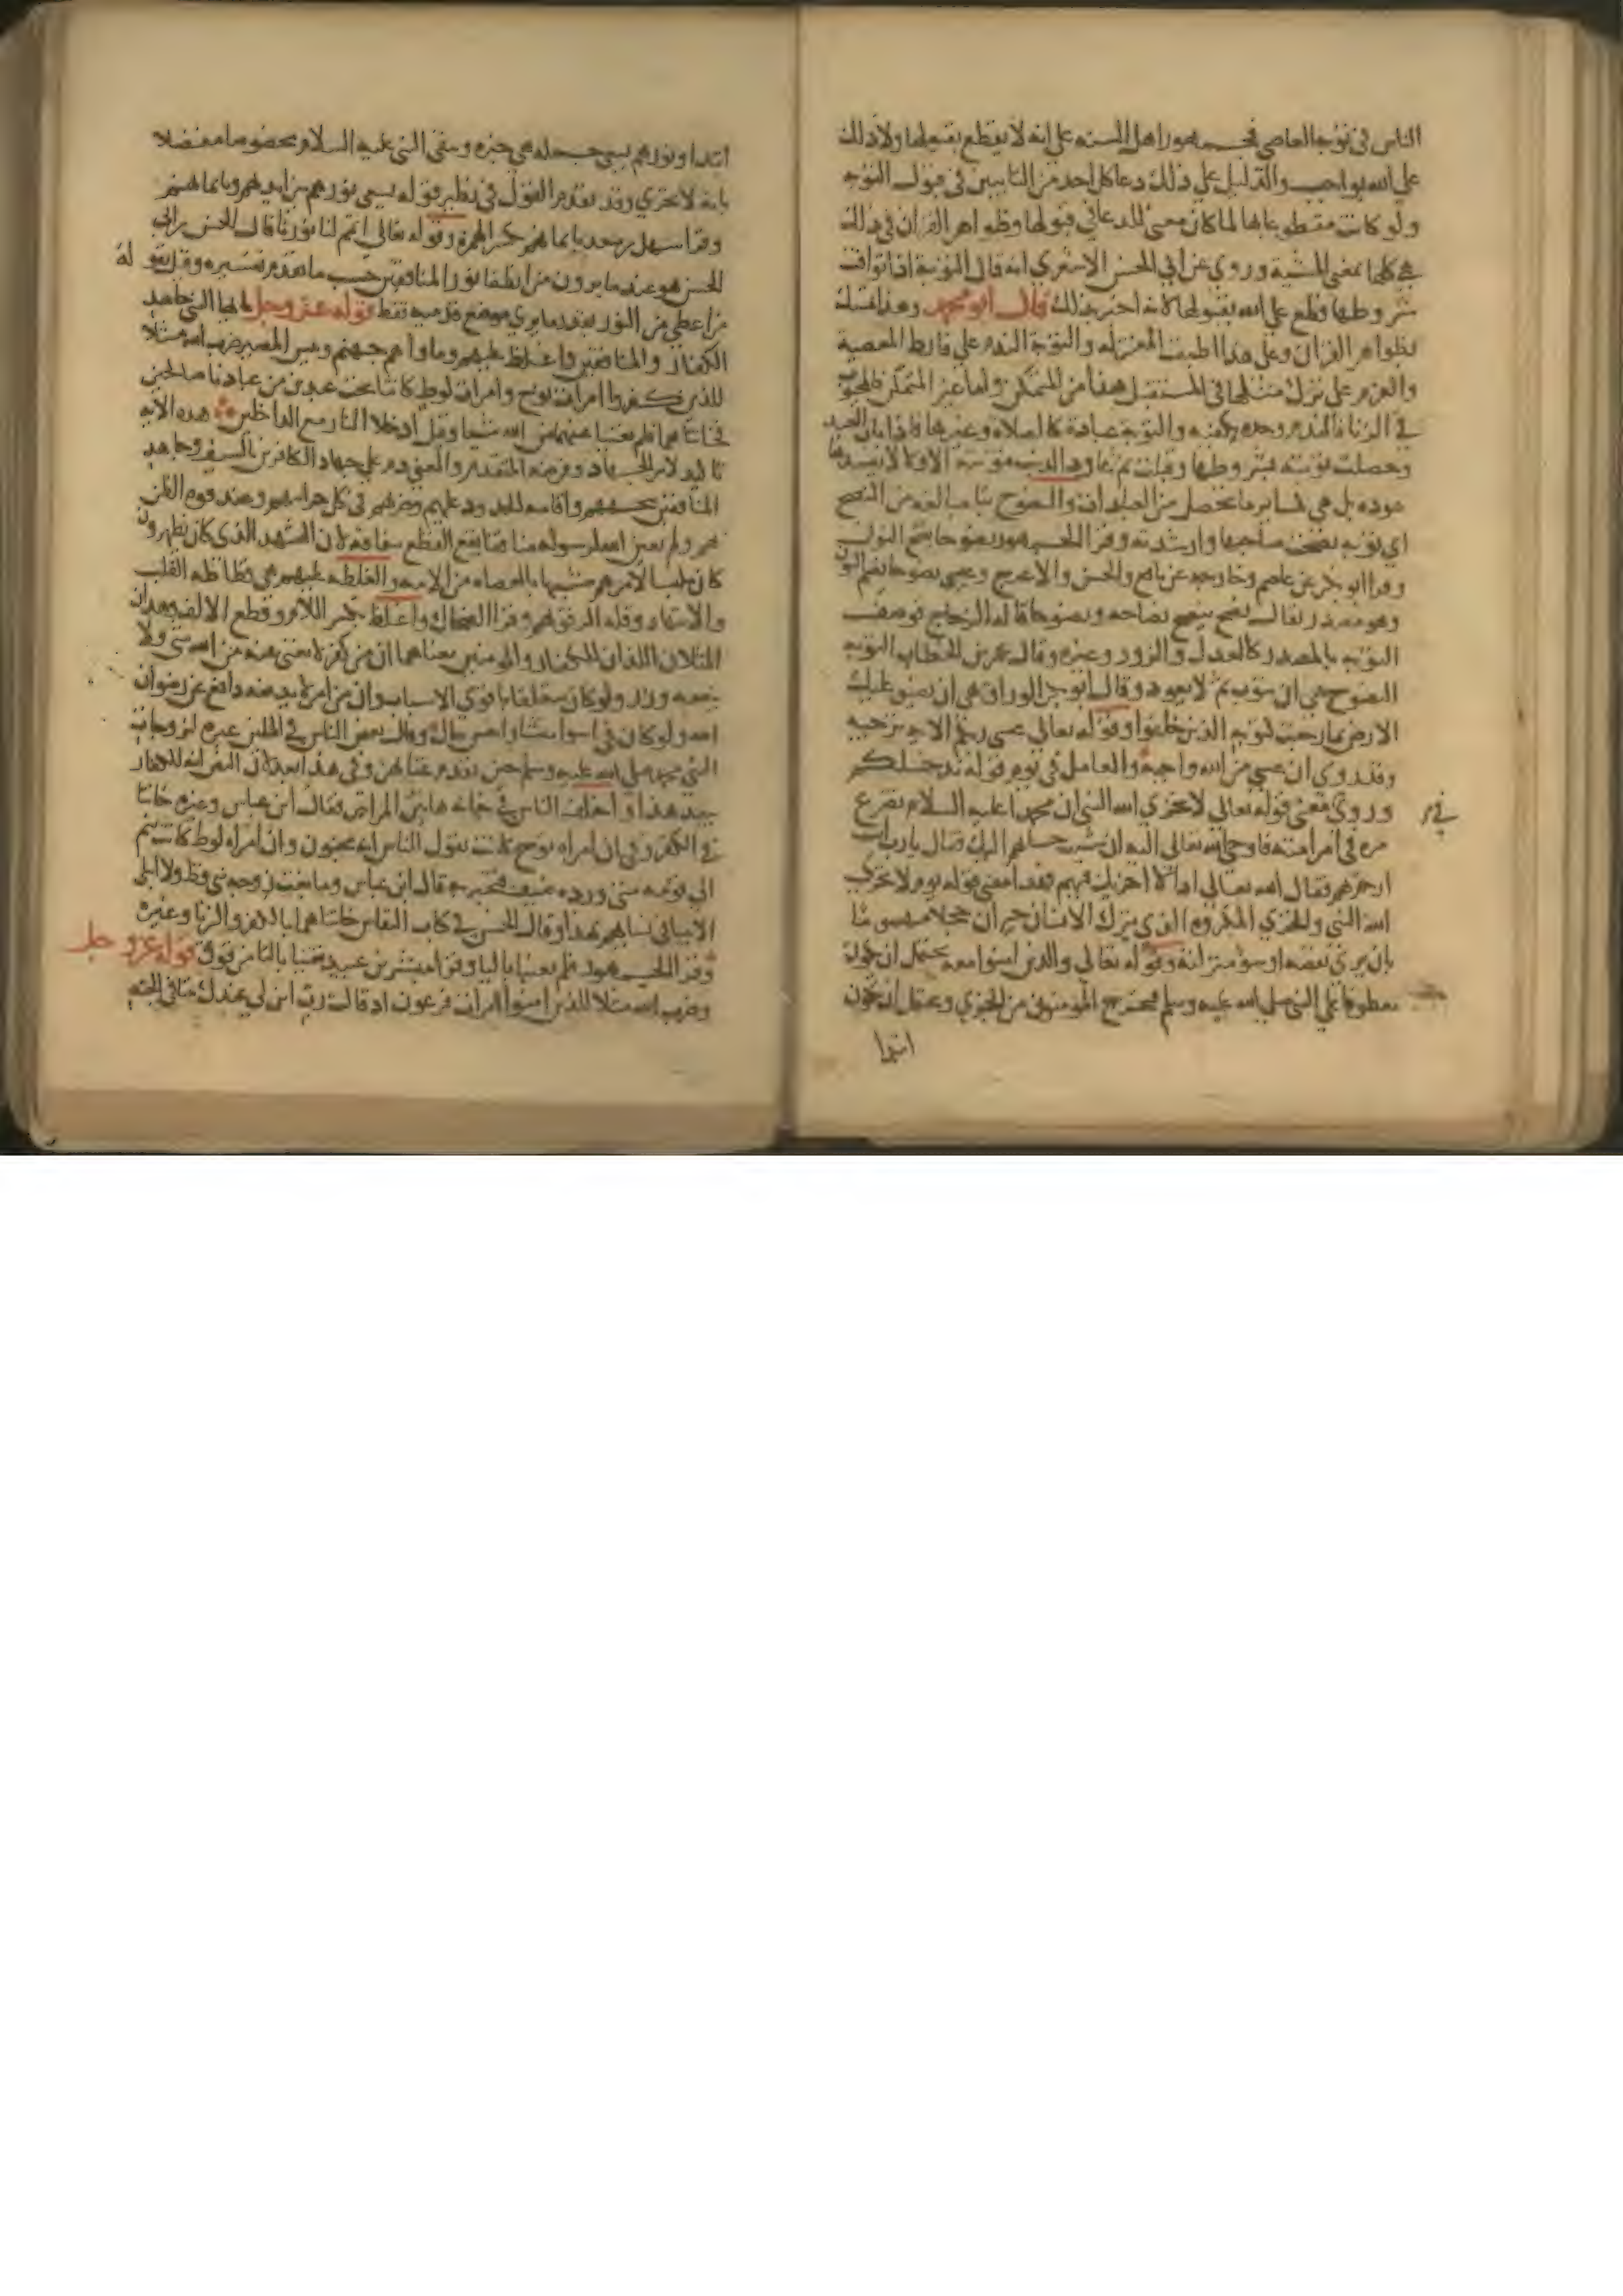 الناس في توبة العاصي فجمهور اهل السنة على انه لا يقطع بقبولها ولا ذلك
على الله بواجب والدليل على ذلك دعا كل احد من التايبين في قبول التوبة
ولو كانت مقطوعا بها لما كان معنى للدعا في قبولها وظواهر القران في ذلك
هي كلها بمعنى المشية وروي عن ابي الحسن الاشعري انه قال التوبة اذا توافرت
شروطها قطع على الله بقبولها لانه اخبر بذلك قال ابو محمد وهذا تمسك
بظواهر القران وعلى هذا اطبقت المعتزلة والتوبة الندم على فارط المعصية
والعزم على ترك مثلها في المستقبل هذا من المتمكن واما غير المتمكن كالمجبوب
في الزنا فالندم وحده يكفيه والتوبة عبادة كالصلاة وغيرها فاذا تاب العبد
وحصلت توبته بشروطها وقبلت ثم عاود الذنب فتوبته الاولى لا تفسدها
عوده بل هي كساير ما تحصل من العبادات والنصوح بنا مبالغة من النصح
اي توبة نصحت صاحبها وارشدته وقرا الجمهور نصوحا بفتح النون
وقرا ابو بكر عن عاصم وخارجة عن نافع والحسن والاعرج وعيسى نصوحا بضم النون
وهو مصدر يقال نصح ينصح نصاحة ونصوحا قاله الزجاج فوصف
التوبة بالمصدر كالعدل والزور وغيره وقال عمر بن الخطاب التوبة
النصوح هي ان يتوب ثم لا يعود وقال ابو بكر الوراق هي ان تضيق عليك
الارض بما رحبت كتوبة الذين خلفوا وقوله تعالى عسى ربكم الاية ترجية
وقد روي ان عسى من الله واجبة والعامل في يوم قوله يدخلكم
وروي في معنى قوله تعالى لا يخزي الله النبي ان محمدا عليه السلام تضرع
مرة في امر امته فاوحى الله تعالى اليه ان شيت جعلت حسابهم اليك فقال يا رب انت
ارحم بهم فقال الله تعالى اذا لا اخزيك فيهم فهذا معنى قوله يوم لا يخزي
الله النبي والخزي المكروه الذي يترك الانسان حيران خجلا مهموما
بان يرى نقصه او سوء منزلته وقوله تعالى والذين امنوا معه يحتمل ان يكون
معطوفا على النبي صلى الله عليه وسلم فيخرج المومنون من الخزي ويحتمل ان يكون
ابتدا
ابتدا ونورهم يسعى جملة هي خبره وبقى النبي عليه السلام مخصوصا مفضلا
بانه لا يخزي وقد تقدم القول في نظير قوله يسعى نورهم بين ايديهم وبايمانهم
وقرا سهل بن سعد بايمانهم بكسر الهمزة وقوله تعالى اتمم لنا نورنا قال الحسن بن ابي
الحسن هو عند ما يرون من انطفا نور المنافقين حسب ما تقدم تفسيره وقيل يقوله
من اعطي من النور بقدر ما يرى موضع قدميه فقط قوله عز وجل يا ايها النبي جاهد
الكفار والمنافقين واغلظ عليهم وماواهم جهنم وبيس المصير ضرب الله مثلا
للذين كفروا امرات نوح وامرات لوط كانتا تحت عبدين من عبادنا صالحين
فخانتاهما فلم يغنيا عنهما من الله شيا وقيل ادخلا النار مع الداخلين هذه الاية
تاكيد لامر الجهاد وفرضه المتقدم والمعنى دم على جهاد الكافرين بالسيف وجاهد
المنافقين واقامة الحدود عليهم وضربهم في كل جرايمهم وعند قوة الظن
بهم ولم يعين الله لرسوله منافقا يقع القطع بنفاقه لان التشهد الذي كانوا يظهرون
كان ملبسا لامرهم مشبها بالعصاة من الامة والغلظة عليهم هي فظاظة القلب
والانتهار وقلة الرفق بهم وقرا الضحاك واغلظ بكسر اللام وقطع الالف وهذان
المثلان اللذان للكفار والمومنين معناهما ان من كفر لا يغني عنه من الله شي ولا
ينفعه وزر ولو كان متعلقا باقوى الاسباب وان من امن لا يدفعه دافع عن رضوان
الله ولو كان في اسوا منشا واخس حال وقال بعض الناس في المثلين عبرة لزوجات
النبي محمد صلى الله عليه وسلم حين تقدم عتابهن وفي هذا بعد لان النص انه للكفار
يبعد هذا واختلف الناس في خيانة هاتين المراتين فقال ابن عباس وغيره خانتا
في الكفر وفي ان امراة نوح كانت تقول للناس انه مجنون وان امراة لوط كانت تنم
الى قومه متى ورده ضيف فتخبر به قال ابن عباس وما بغت زوجة نبي قط ولا ابتلي
الانبيا في نسايهم بهذا وقال الحسن في كتاب النقاش خانتاهما بالكفر والزنا وغيره
وقرا الجمهور فلم يغنيا باليا وقرا مبشر بن عبيد تغنيا بالتا من فوق قوله عز وجل
وضرب الله مثلا للذين امنوا امرات فرعون اذ قالت رب ابن لي عندك بيتا في الجنة